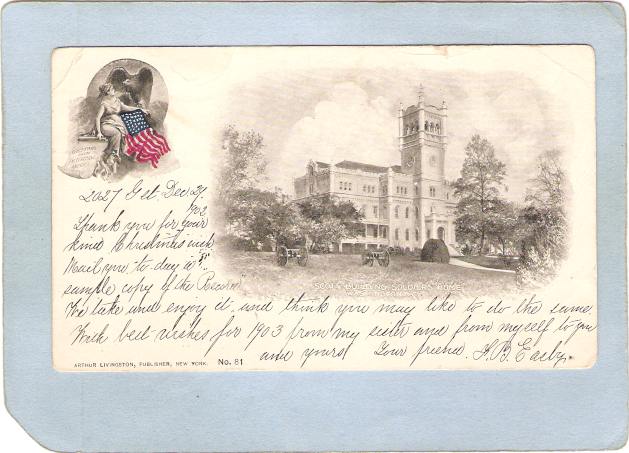 GREETINGS
FROM
WASHINGTON
2027 G St. Dec 29
1902
Thank you for your
kind Christmas wish
Mail you to-day a
sample copy of the Record
We take and enjoy it, and think you may like to do the same.
With best wishes for 1903 from my sister and from myself to you
and yours Your friend.
SCOTT BUILDING, SOLDIERS' HOME
ARTHUR LIVINGSTON, PUBLISHER, NEW YORK. No. 81